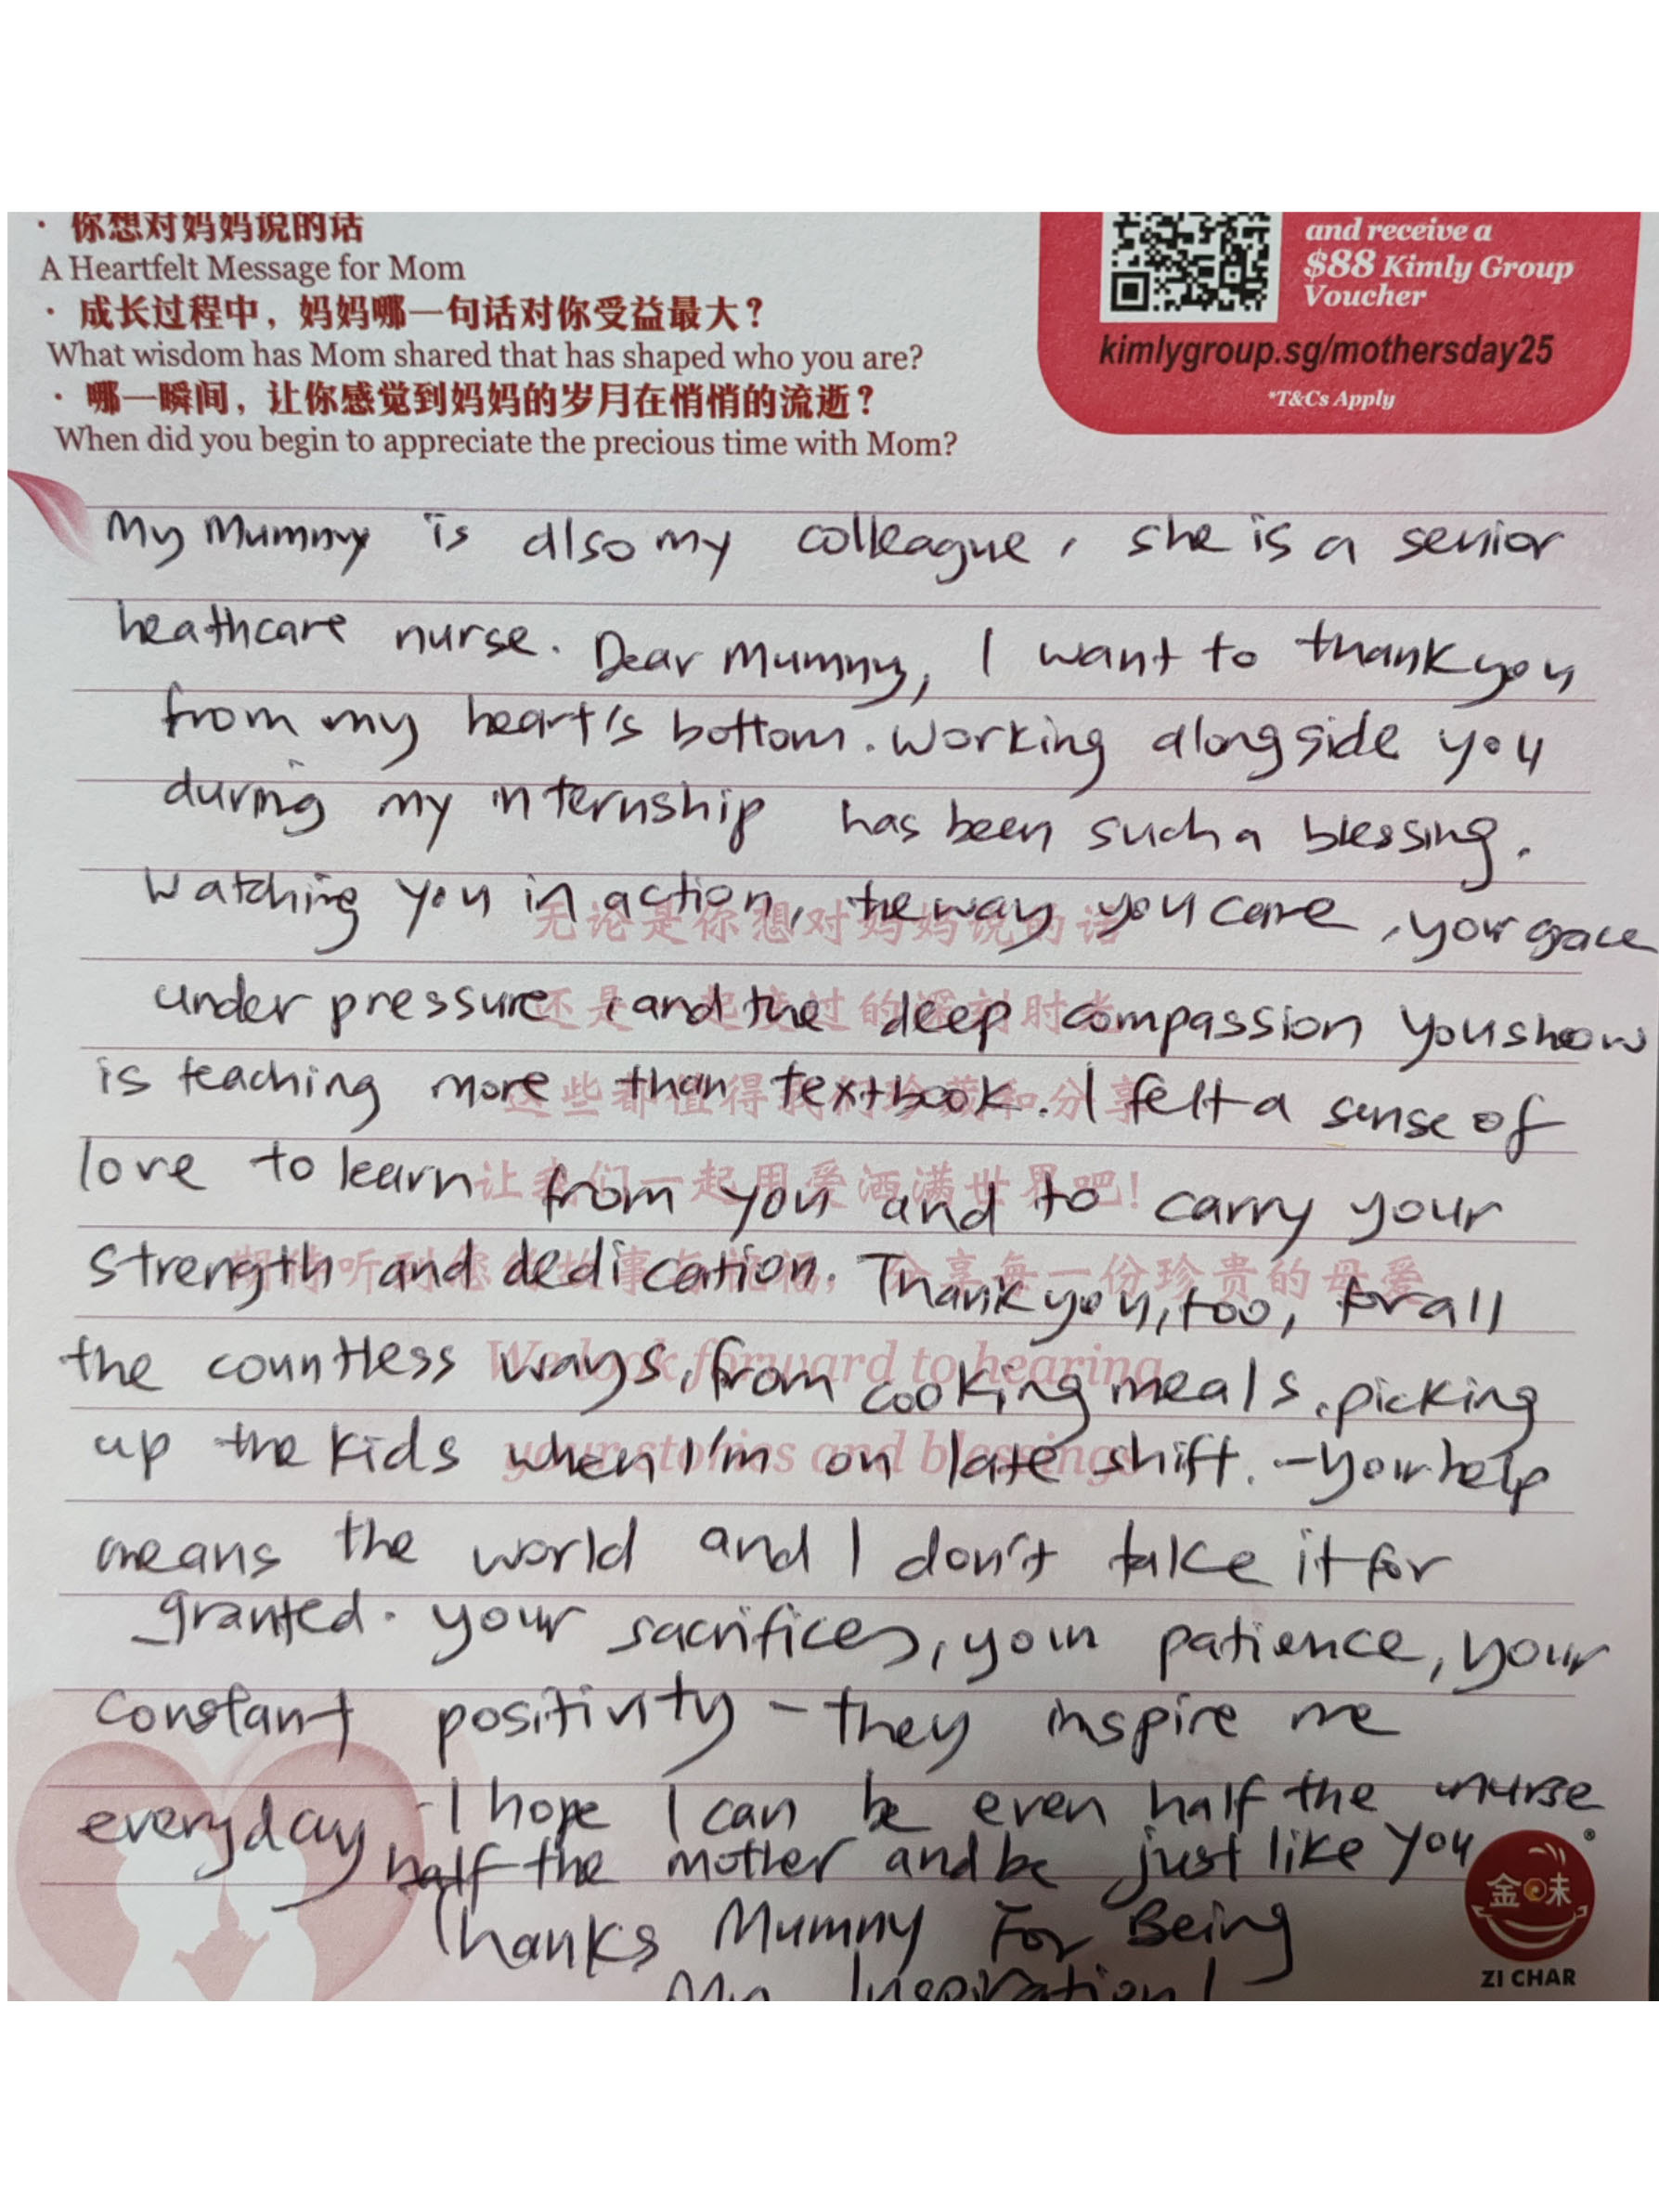 · 你想对妈妈说的话
A Heartfelt Message for Mom
· 成长过程中，妈妈哪一句话对你受益最大？
What wisdom has Mom shared that has shaped who you are?
· 哪一瞬间，让你感觉到妈妈的岁月在悄悄的流逝？
When did you begin to appreciate the precious time with Mom?
and receive a
$88 Kimly Group
Voucher
kimlygroup.sg/mothersday25
*T&Cs Apply
My Mummy is also my colleague, she is a senior
heathcare nurse. Dear Mummy, I want to thank you
from my heart's bottom. Working alongside you
during my internship has been such a blessing.
Watching you in action, the way you care, your grace
无论是你想对妈妈说的话
under pressure, and the deep compassion you show
还是一起度过的深刻时光
is teaching more than textbook. I felt a sense of
这些都值得我们珍藏和分享
love to learn from you and to carry your
让我们一起用爱洒满世界吧！
strength and dedication. Thank you, too, for all
期待听到您的故事与祝福，分享每一份珍贵的母爱
the countless ways, from cooking meals, picking
We look forward to hearing
up the kids when I'm on late shift. - your help
your stories and blessings
means the world and I don't take it for
granted. your sacrifices, your patience, your
constant positivity - they inspire me
everyday - I hope I can be even half the nurse
half the mother and be just like you
Thanks Mummy For Being
My Inspiration!
金味
ZI CHAR